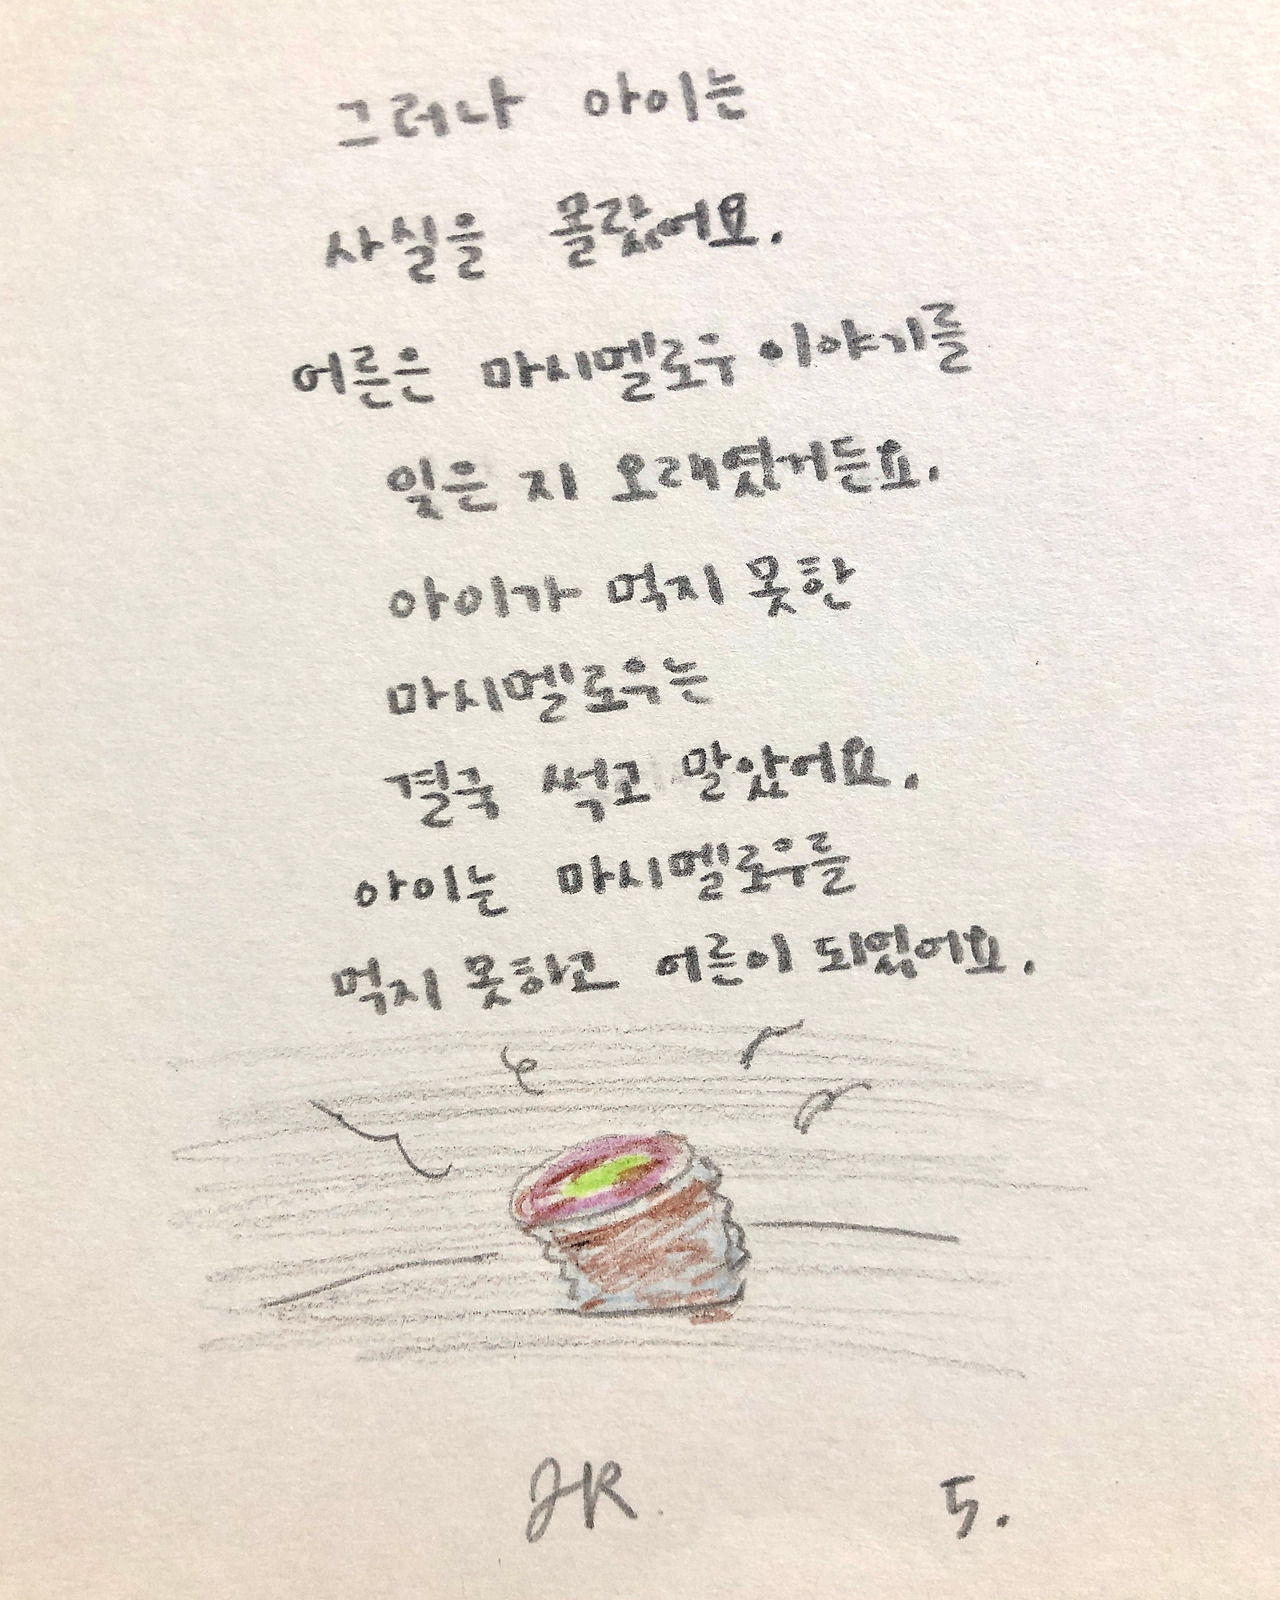 그러나 아이는
사실을 몰랐어요.
어른은 마시멜로우 이야기를
잊은 지 오래였거든요.
아이가 먹지 못한
마시멜로우는
결국 썩고 말았어요.
아이는 마시멜로우를
먹지 못하고 어른이 되었어요.
JR.
5.